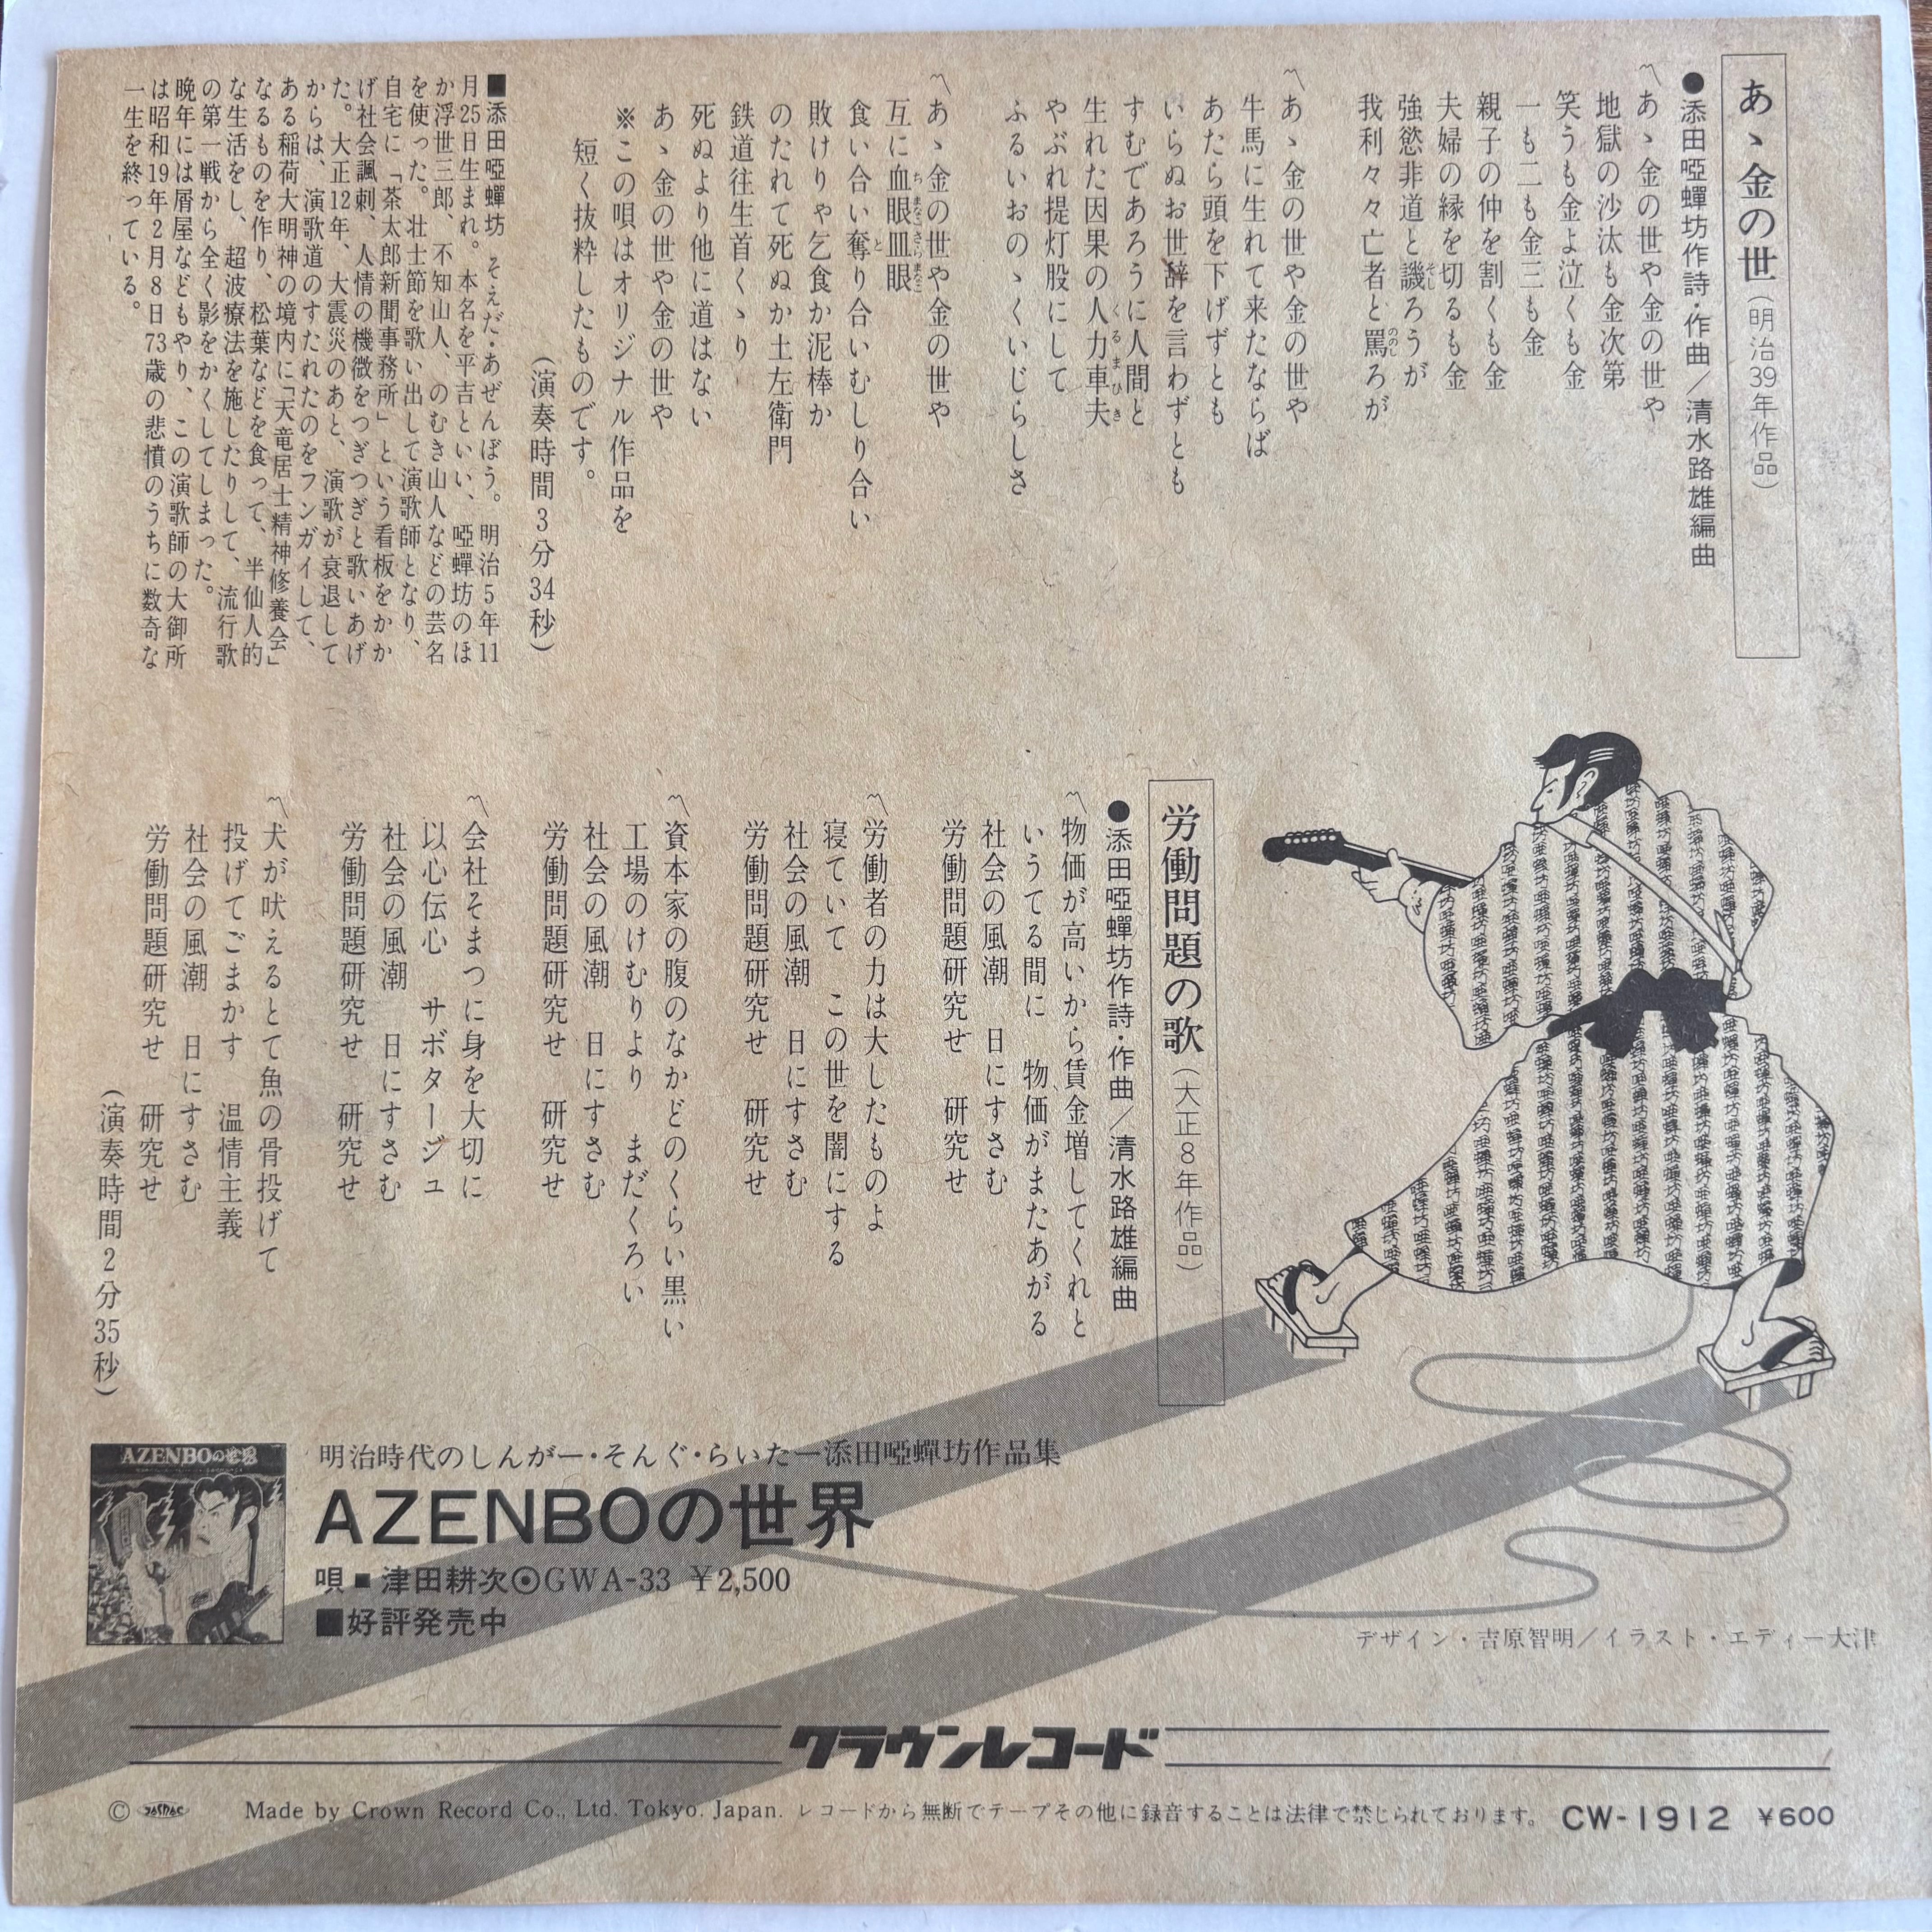 あゝ金の世(明治39年作品)
●添田啞蟬坊作詩・作曲/清水路雄編曲
〽あゝ金の世や金の世や
地獄の沙汰も金次第
笑うも金よ泣くも金
一も二も金三も金
親子の仲を割くも金
夫婦の縁を切るも金
強慾非道と譏ろうが
我利々々亡者と罵ろが
〽あゝ金の世や金の世や
牛馬に生れて来たならば
あたら頭を下げずとも
いらぬお世辞を言わずとも
すむであろうに人間と
生れた因果の人力車夫
やぶれ提灯股にして
ふるいおのゝくいじらしさ
〽あゝ金の世や金の世や
互に血眼皿眼
食い合い奪り合いむしり合い
敗けりゃ乞食か泥棒か
のたれて死ぬか土左衛門
鉄道往生首くゝり
死ぬより他に道はない
あゝ金の世や金の世や
※この唄はオリジナル作品を
短く抜粋したものです。
(演奏時間3分34秒)
■添田啞蟬坊 そえだ・あぜんぼう。明治5年11
月25日生まれ。本名を平吉といい、啞蟬坊のほ
か浮世三郎、不知山人、のむき山人などの芸名
を使った。壮士節を歌い出して演歌師となり、
自宅に「茶太郎新聞事務所」という看板をかか
げ社会諷刺、人情の機微をつぎつぎと歌いあげ
た。大正12年、大震災のあと、演歌が衰退して
からは、演歌道のすたれたのをフンガイして、
ある稲荷大明神の境内に「天竜居士精神修養会」
なるものを作り、松葉などを食って、半仙人的
な生活をし、超波療法を施したりして、流行歌
の第一戦から全く影をかくしてしまった。
晩年には屑屋などもやり、この演歌師の大御所
は昭和19年2月8日73歳の悲憤のうちに数奇な
一生を終っている。
労働問題の歌(大正8年作品)
●添田啞蟬坊作詩・作曲/清水路雄編曲
〽物価が高いから賃金増してくれと
いうてる間に 物価がまたあがる
社会の風潮 日にすさむ
労働問題研究せ 研究せ
〽労働者の力は大したものよ
寝ていて この世を闇にする
社会の風潮 日にすさむ
労働問題研究せ 研究せ
〽資本家の腹のなかどのくらい黒い
工場のけむりより まだくろい
社会の風潮 日にすさむ
労働問題研究せ 研究せ
〽会社そまつに身を大切に
以心伝心 サボタージュ
社会の風潮 日にすさむ
労働問題研究せ 研究せ
〽犬が吠えるとて魚の骨投げて
投げてごまかす 温情主義
社会の風潮 日にすさむ
労働問題研究せ 研究せ
(演奏時間2分35秒)
AZENBOの世界
明治時代のしんがー・そんぐ・らいたー添田啞蟬坊作品集
AZENBOの世界
唄■津田耕次⦿GWA-33 ¥2,500
■好評発売中
デザイン・吉原智明/イラスト・エディー大津
クラウンレコード
© JASRAC Made by Crown Record Co., Ltd. Tokyo. Japan. レコードから無断でテープその他に録音することは法律で禁じられております。 CW-1912 ¥600